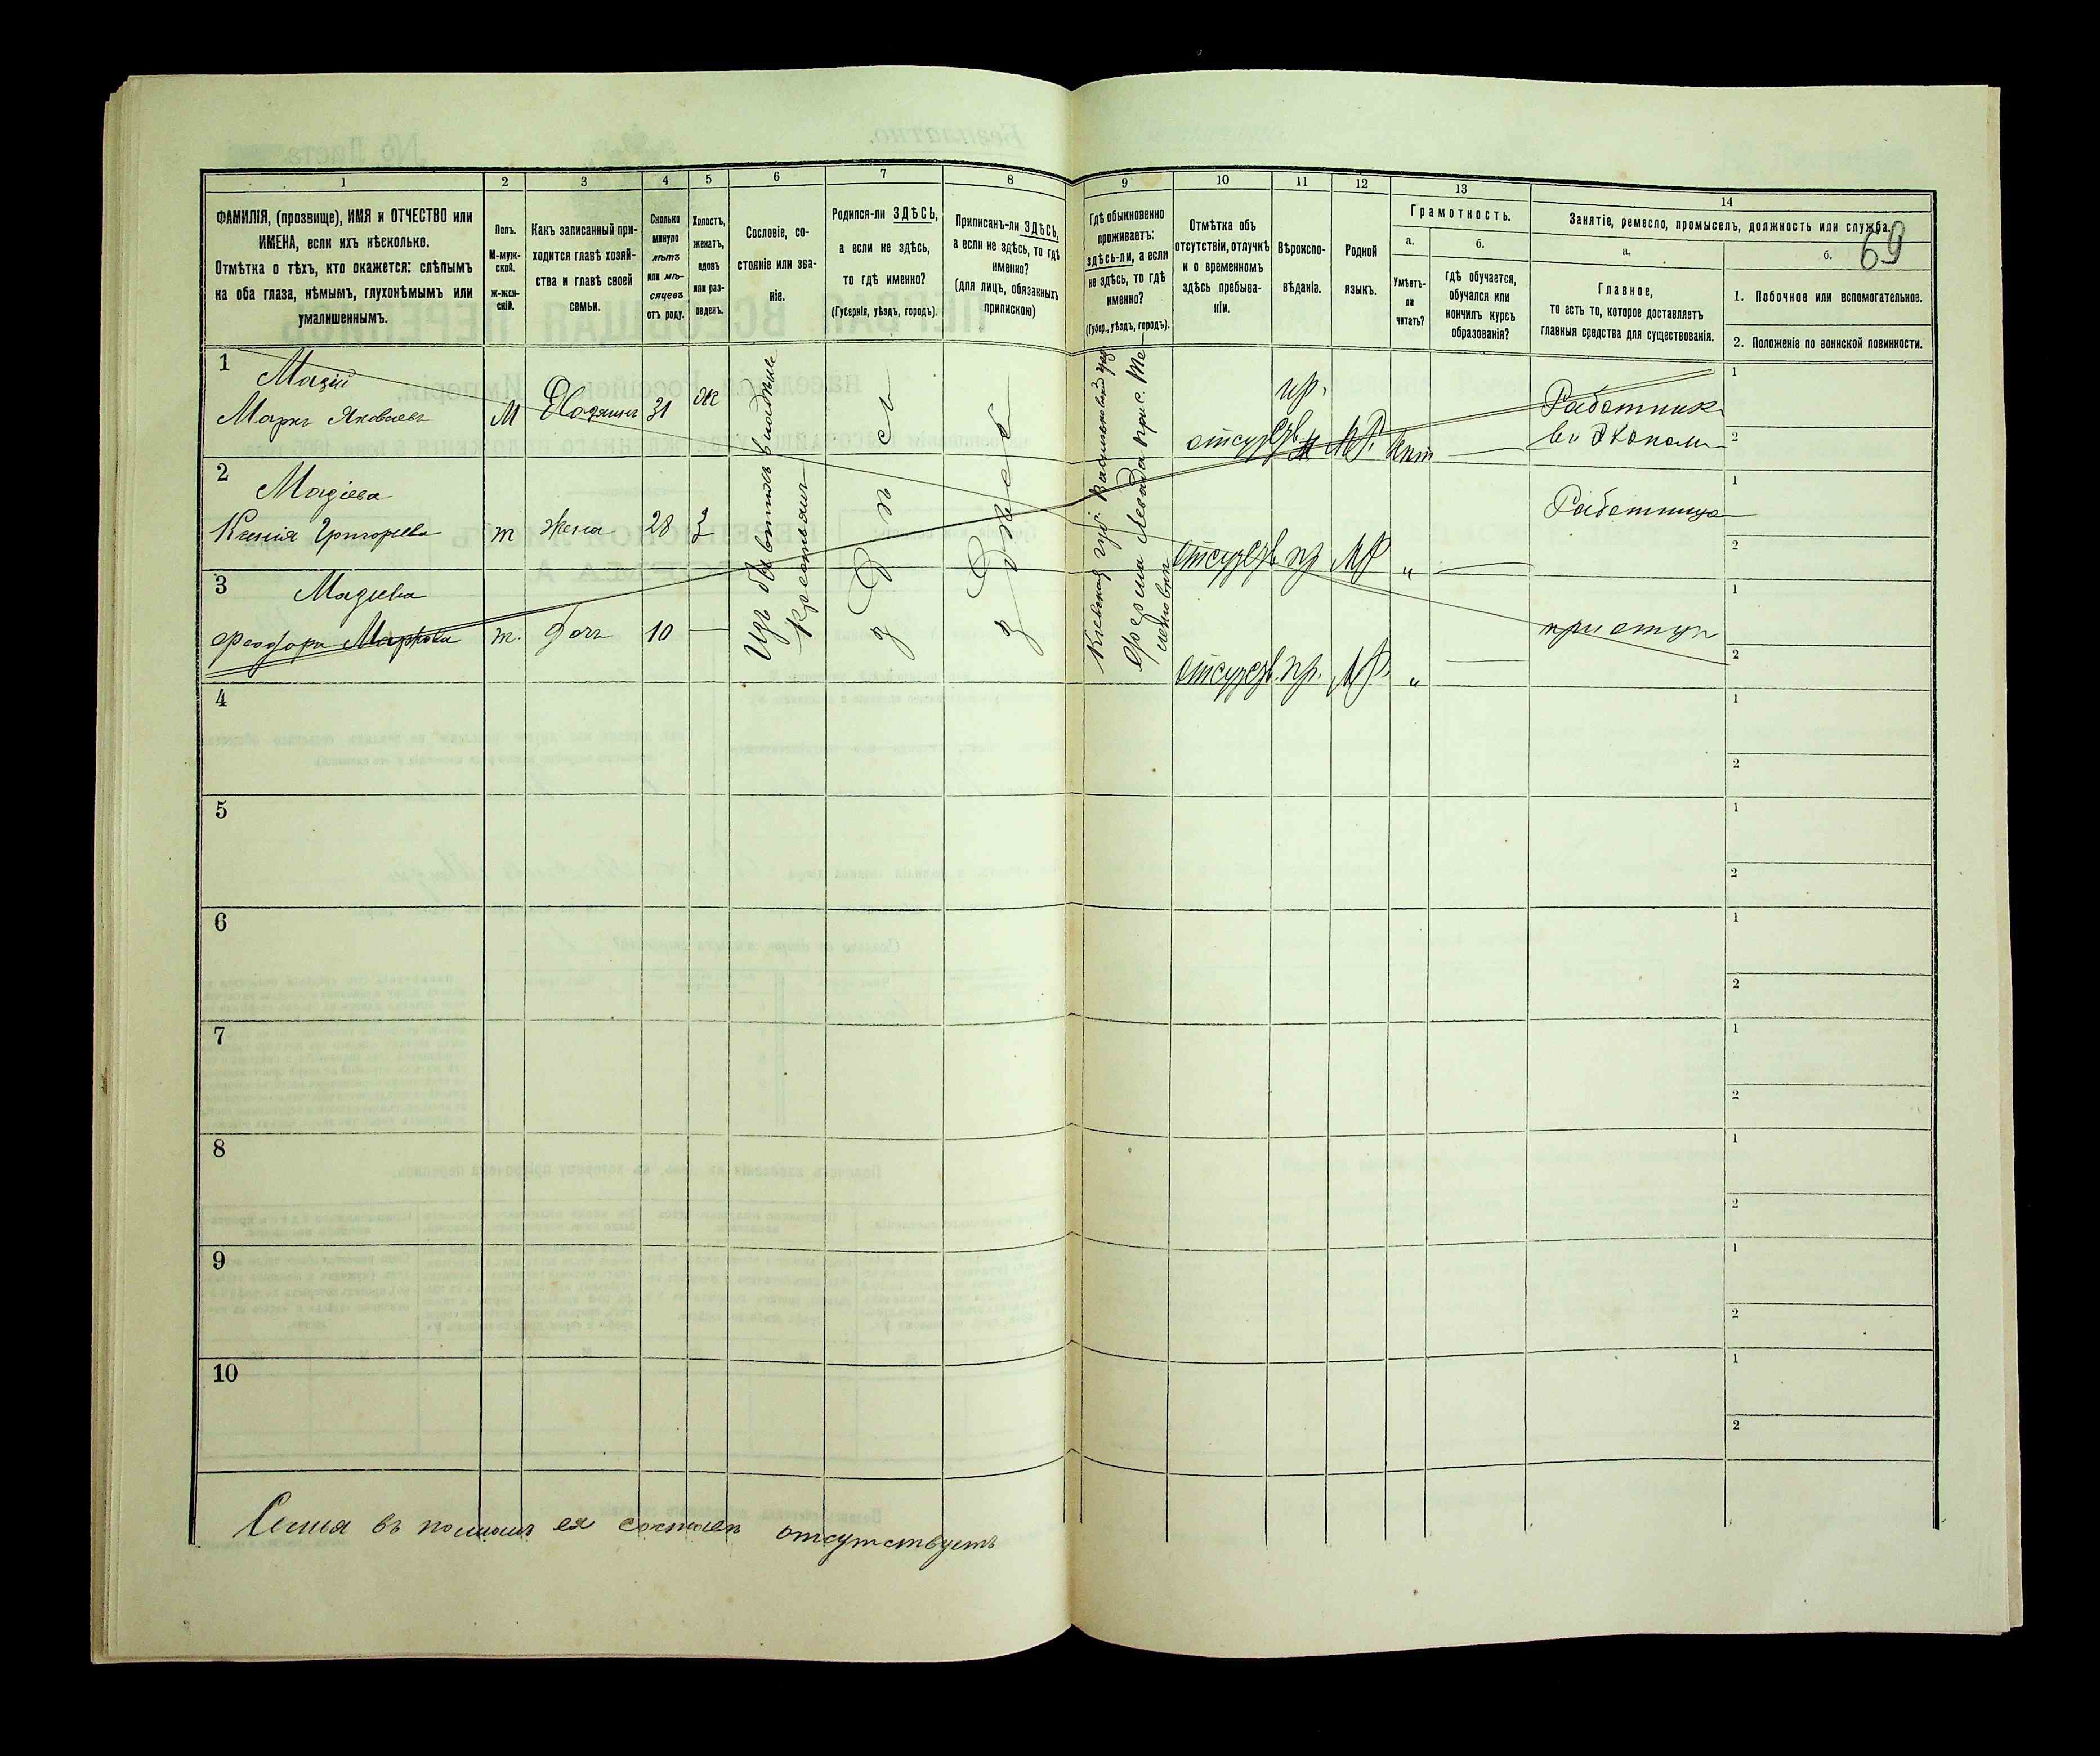 69
1
2
3
4
5
6
7
8
9
10
11
12
13
14
ФАМИЛІЯ, (прозвище), ИМЯ и ОТЧЕСТВО или
ИМЕНА, если ихъ нѣсколько.
Отмѣтка о тѣхъ, кто окажется: слѣпымъ
на оба глаза, нѣмымъ, глухонѣмымъ или
умалишеннымъ.
Полъ.
М-муж-
ской.
Ж-жен-
скій.
Какъ записанный при-
ходится главѣ хозяй-
ства и главѣ своей
семьи.
Сколько
минуло
лѣтъ
или мѣ-
сяцевъ
отъ роду.
Холостъ,
женатъ,
вдовъ
или раз-
веденъ.
Сословіе, со-
стояніе или зва-
ніе.
Родился-ли ЗДѢСЬ,
а если не здѣсь,
то гдѣ именно?
(Губернія, уѣздъ, городъ).
Приписанъ-ли ЗДѢСЬ,
а если не здѣсь, то гдѣ
именно?
(для лицъ, обязанныхъ
припискою)
Гдѣ обыкновенно
проживаетъ:
здѣсь-ли, а если
не здѣсь, то гдѣ
именно?
(Губер., уѣздъ, городъ).
Отмѣтка объ
отсутствіи, отлучкѣ
и о временномъ
здѣсь пребыва-
ніи.
Вѣроиспо-
вѣданіе.
Родной
языкъ.
Грамотность.
а.
Умѣетъ-
ли
читать?
б.
гдѣ обучается,
обучался или
кончилъ курсъ
образованія?
Занятіе, ремесло, промыселъ, должность или служба.
а.
Главное,
то есть то, которое доставляетъ
главныя средства для существованія.
б.
1. Побочное или вспомогательное.
2. Положеніе по воинской повинности.
1
Мазій
Маркъ Яковлевъ
М
Хозяинъ
31
ж
отсуд
пр.
МР.
нѣт
Работник
въ Эконом
1
2
2
Мазіева
Ксенія Григорьева
ж
жена
28
З
отсуд
пр
МР
"
Работница
1
2
3
Мазіева
Феодора Маркова
ж.
дочь
10
отсуд
пр.
МР.
"
при отцѣ
1
2
Крестьянъ
здѣсь
здѣсь
Кіевская губ.
4
1
2
5
1
2
6
1
2
7
1
2
8
1
2
9
1
2
10
1
2
Семья въ полномъ ея составѣ отсутствуетъ